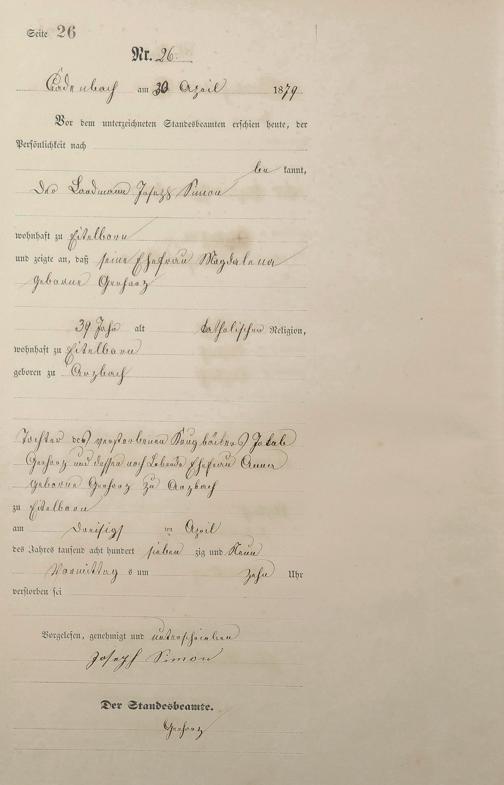 Seite 26
Nr. 26.
Cadenbach am 30 April 1879
Vor dem unterzeichneten Standesbeamten erschien heute, der
Persönlichkeit nach
be kannt,
Der Landmann Joseph Simon
wohnhaft zu Eitelborn
und zeigte an, daß seine Ehefrau Magdalena
geborne Gerharz
39 Jahr alt katholischen Religion,
wohnhaft zu Eitelborn
geboren zu Arzbach
Tochter des verstorbenen Jakob
Gerharz und dessen noch Lebende Ehefrau Anna
geborne Gerharz zu Arzbach
zu Eitelborn
am Dreisigst en April
des Jahres tausend acht hundert sieben zig und Neun
Vormittag s um Zehn Uhr
verstorben sei
Vorgelesen, genehmigt und unterschrieben
Joseph Simon
Der Standesbeamte.
Gerharz